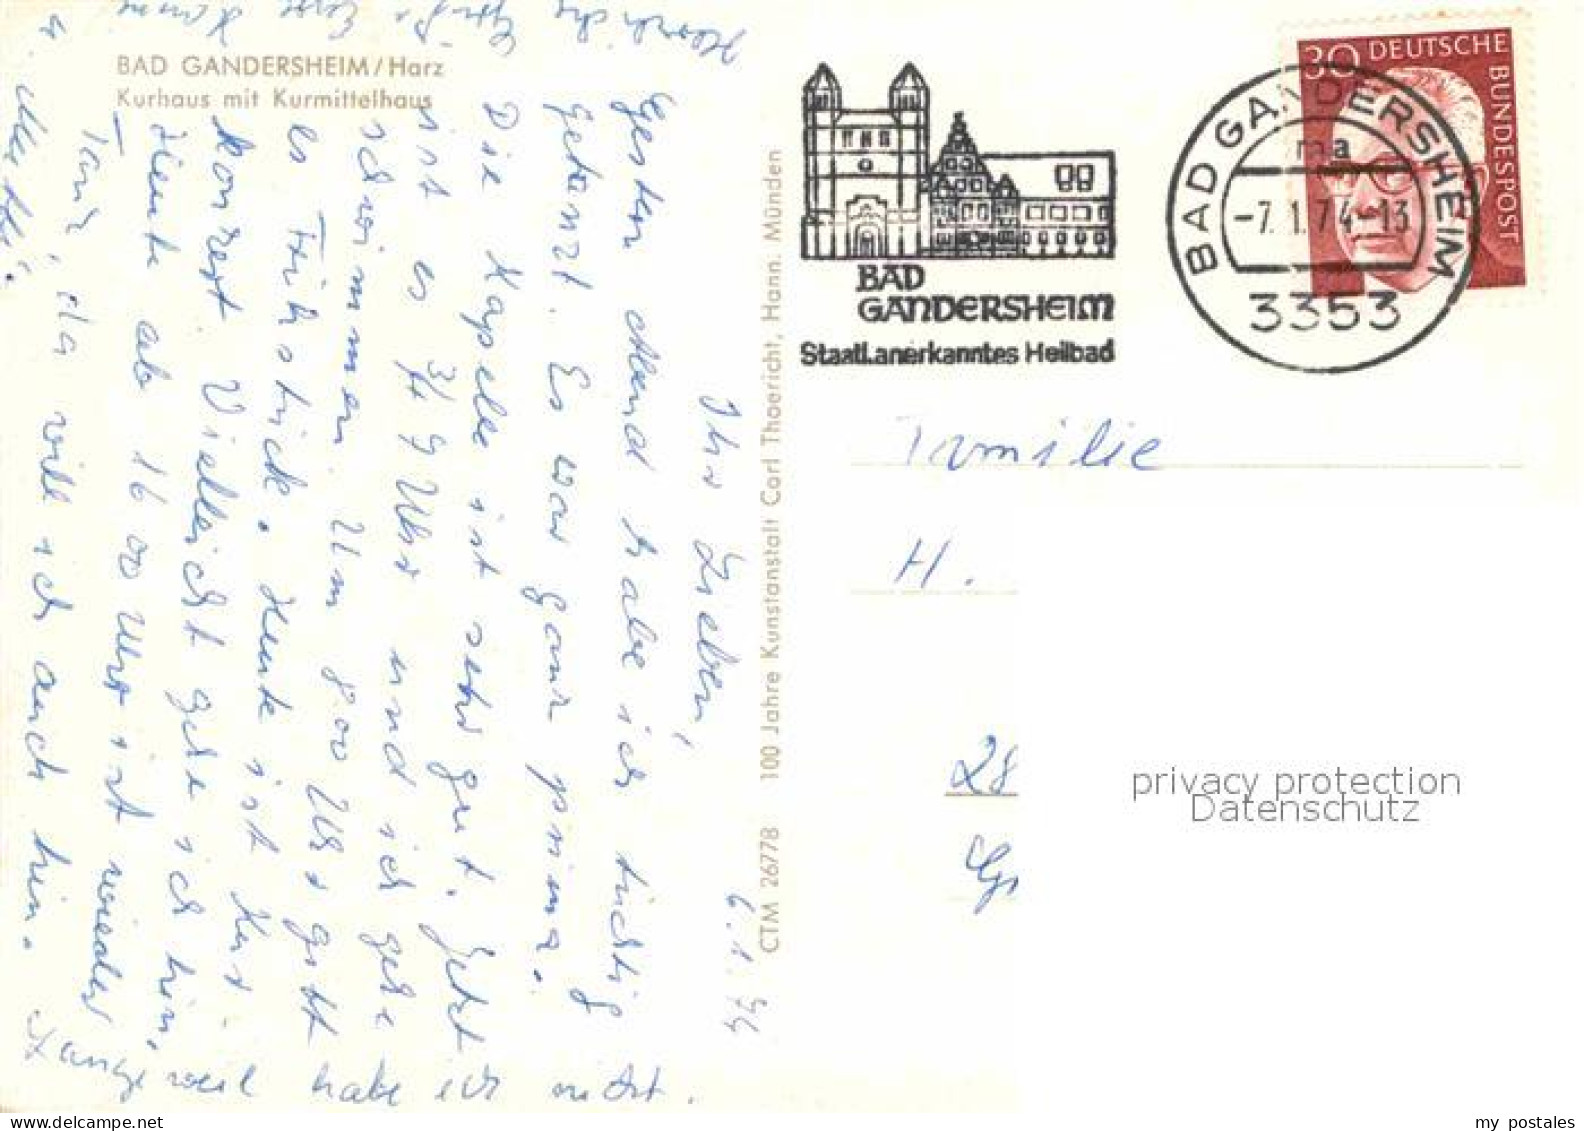 BAD GANDERSHEIM/Harz
Kurhaus mit Kurmittelhaus
CTM 26778 100 Jahre Kunstanstalt Carl Thoericht, Hann. Münden
BAD
GANDERSHEIM
Staatl.anerkanntes Heilbad
BAD GANDERSHEIM
ma
-7.1.74-13
3353
30 DEUTSCHE BUNDESPOST
Familie
H.
28
privacy protection
Datenschutz
6.1.74
Ihr Lieben,
Gestern Abend habe ich tüchtig
getanzt. Es war ganz prima.
Die Kapelle ist sehr gut. Jetzt
ist es 3/4 9 Uhr und ich gehe
schwimmen. Um 8.00 Uhr gibt
es Frühstück. Heute ist Kur-
konzert. Vielleicht gehe ich hin.
Heute ab 16 00 Uhr ist wieder
Tanz, da will ich auch hin.
weil habe ich nicht.
Herzliche Grüße
my postales